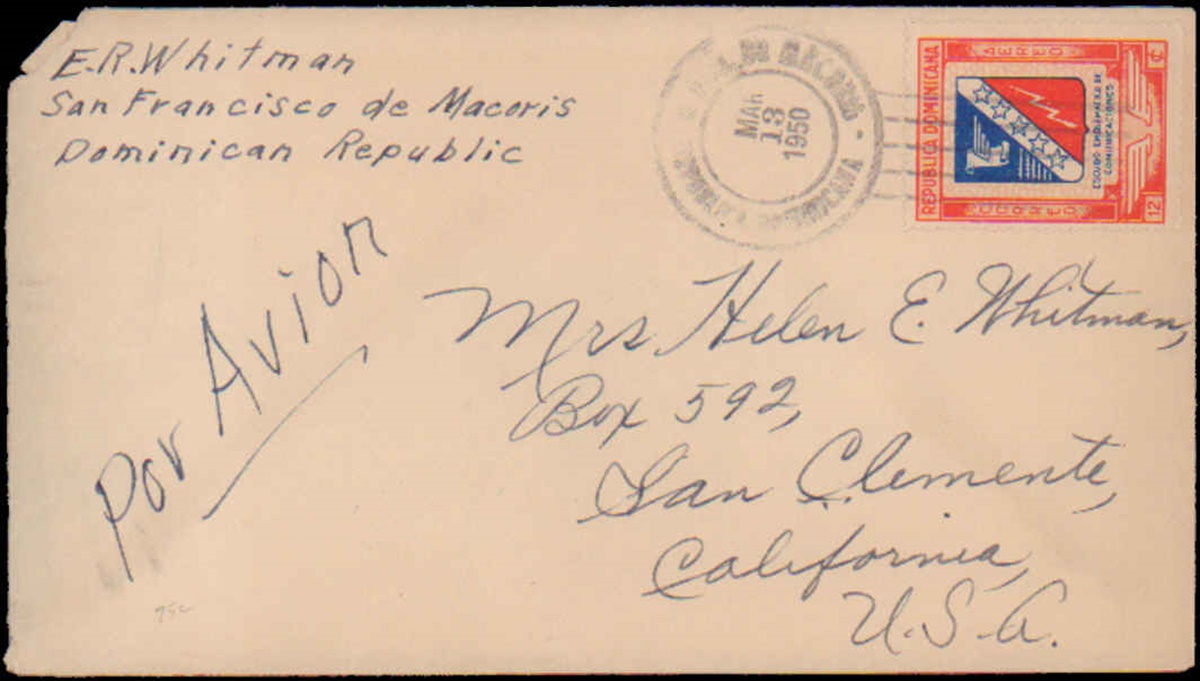 E.R.Whitman
San Francisco de Macoris
Dominican Republic
MAR
13
1950
REPUBLICA DOMINICANA
AEREO
ESCUDO EMBLEMATICO DE
COMUNICACIONES
CORREO
12
¢
Por Avion
Mrs Helen E. Whitman,
Box 592,
San Clemente,
California,
U.S.A.
75c